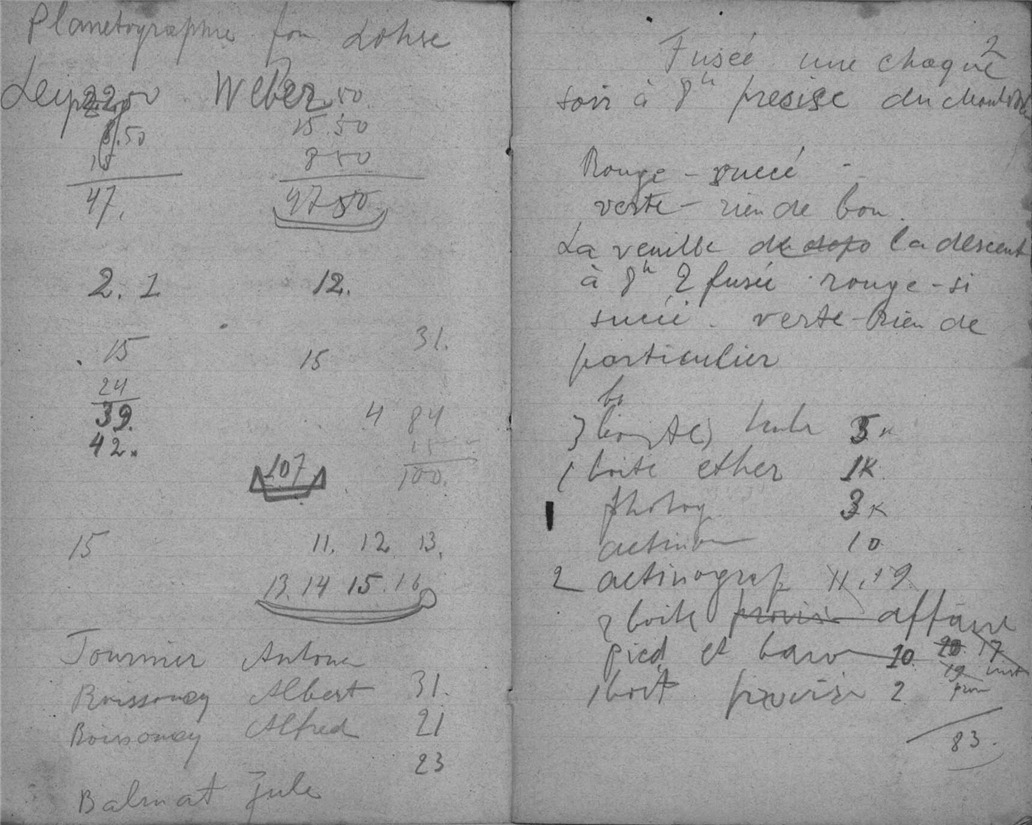 Planetographie fon Lohse
Leipzig Weber
22.50 50.
8.50 15.50
15 8 50
47. 47 50
2. 1 12.
15 15 31.
24
39. 4 84
42. 15
107 100.
15 11. 12 13.
13. 14 15. 16
Tournier Antoine
Boissonay Albert 31.
Boissonay Alfred 21
23
Balmat Jule
2
Fusée une chaque
soir à 8h precise du
Rouge - succé -
verte - rien de bon.
La veuille de depo la descent
à 8h 2 fusée rouge - si
succé. verte - Rien de
particulier
bo
3 5 K
1 boite ether 1K.
photog. 3 K
actino 10
2 actinograf 11, 19
2 boite provis affaire
pied et baro 10 20 17
19
1 boit provisi 2
83.